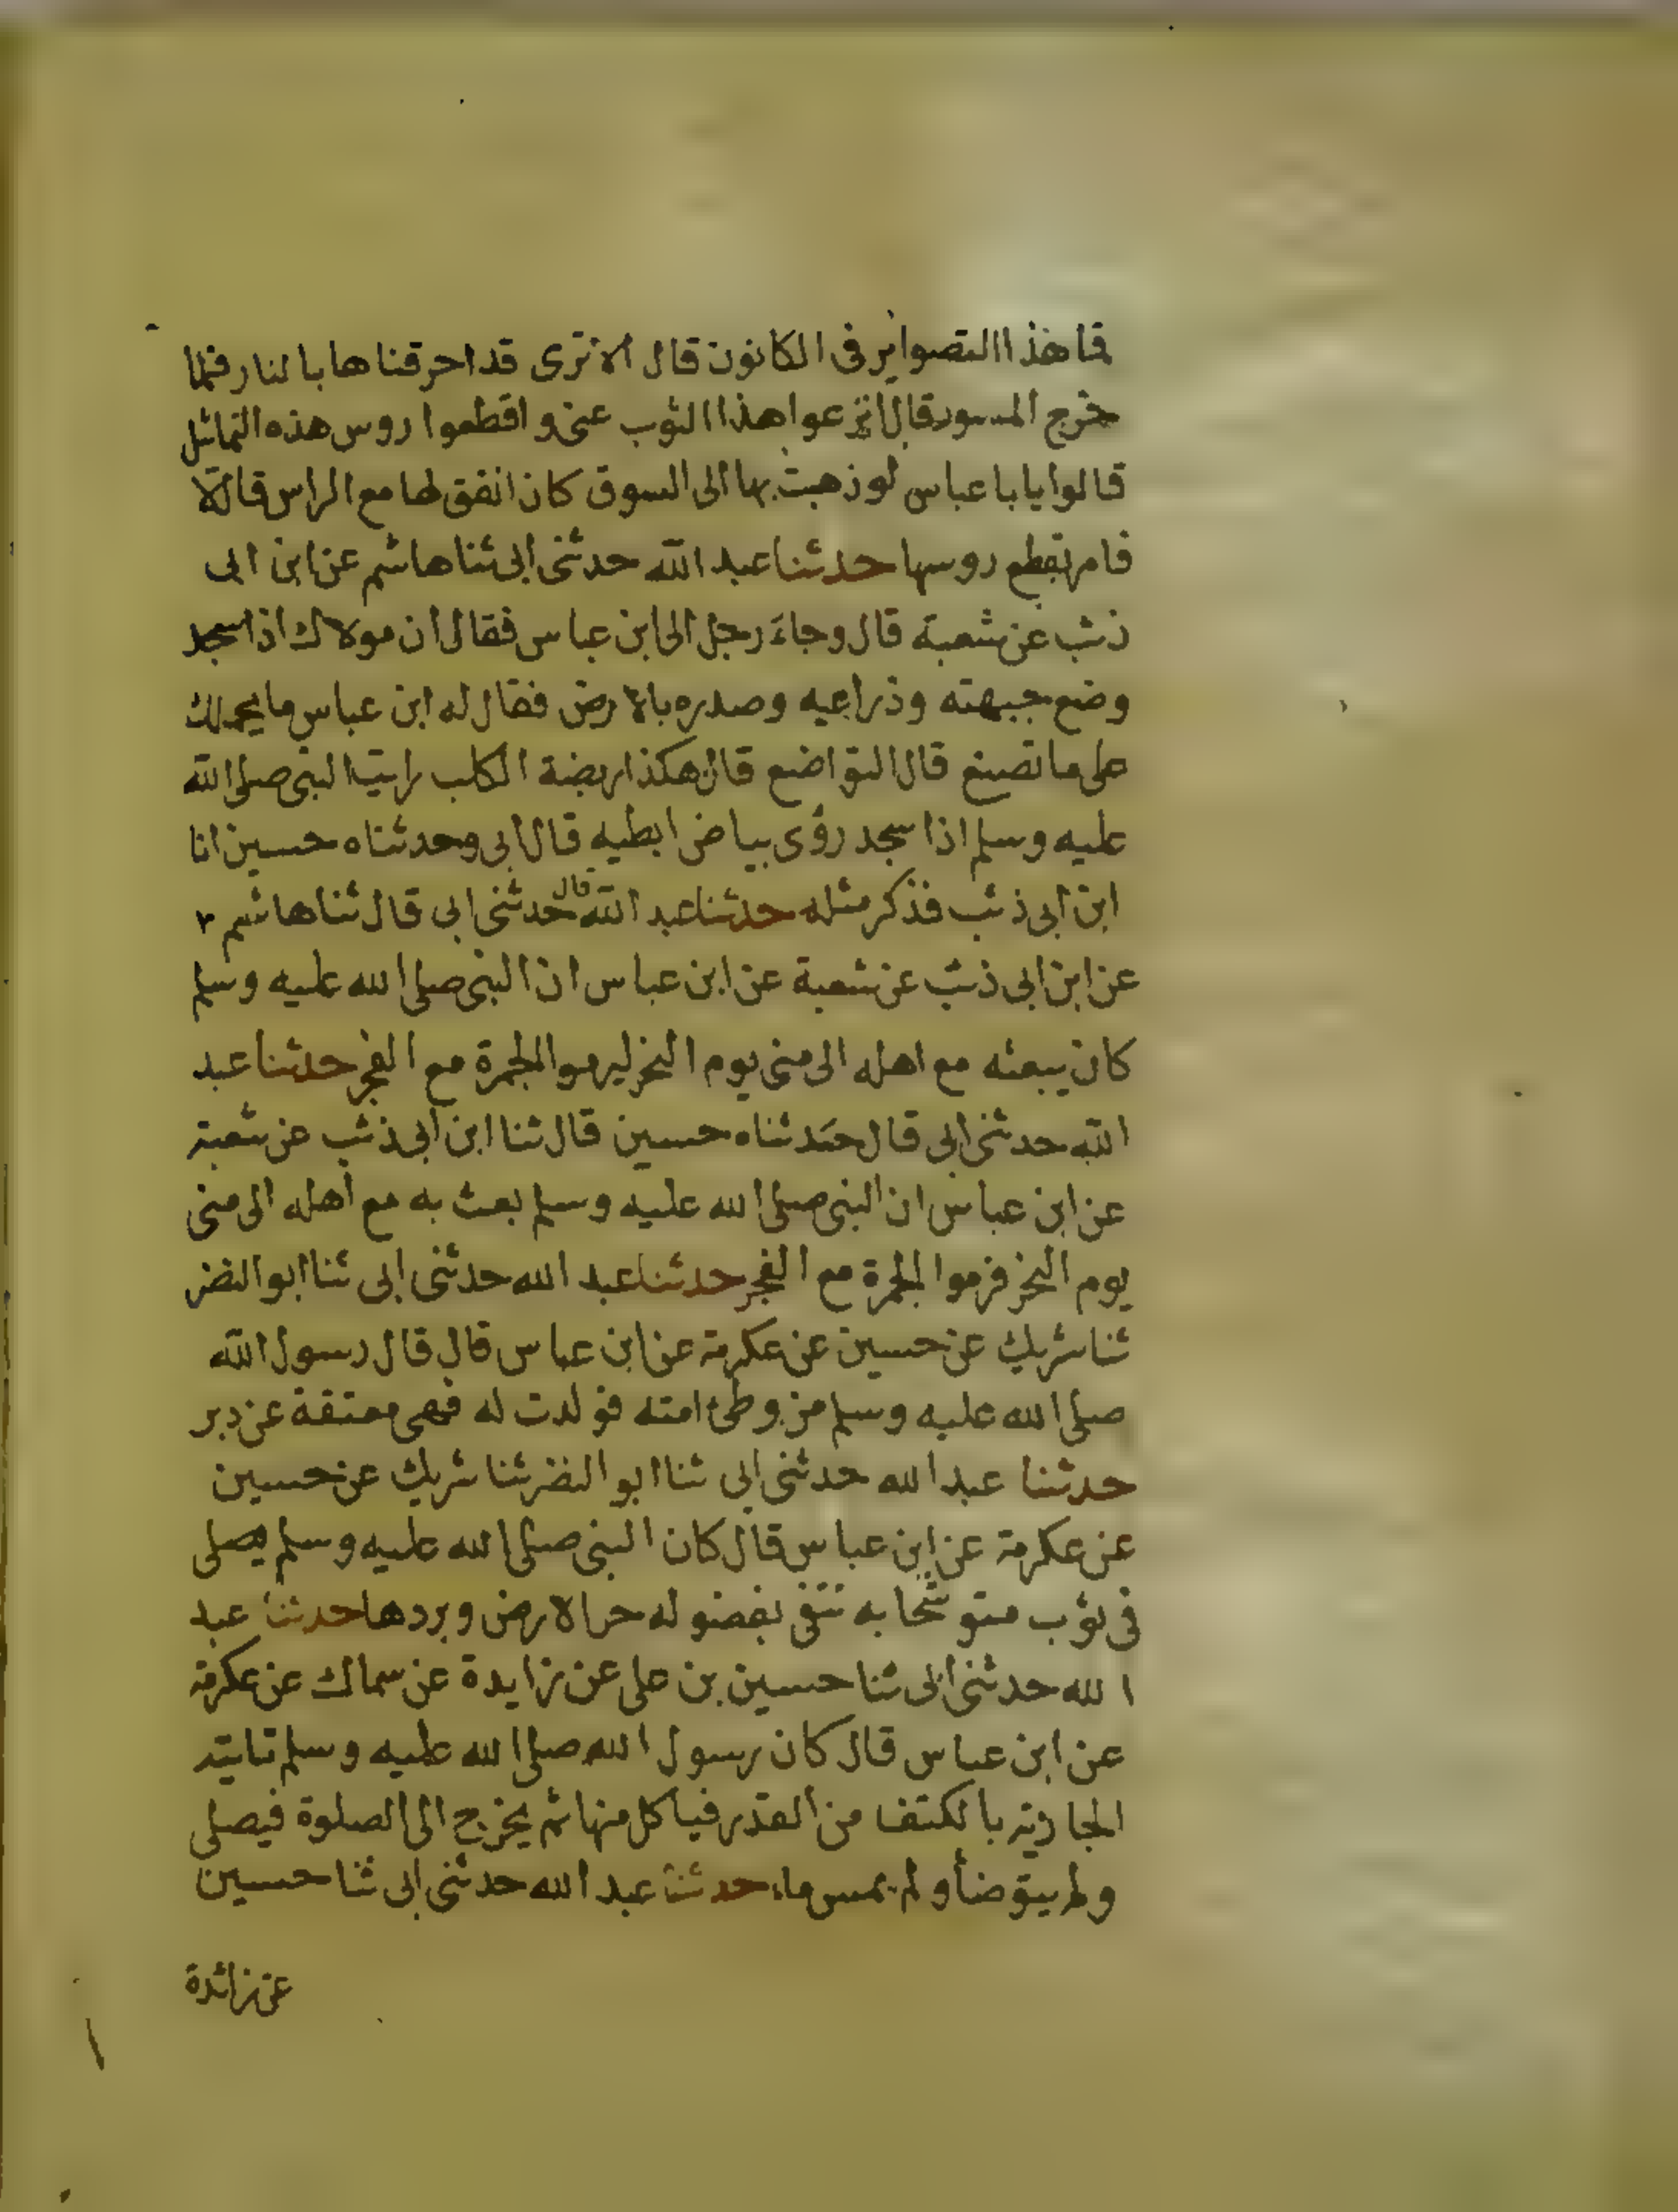 فما هذا التصواير فى الكانون قال الا ترى قد احرقناها بالنار فلما
خرج المسور قال انزعوا هذا الثوب عنى واقطعوا روس هذه التماثيل
قالوا يابا عباس لو ذهبت بها الى السوق كان انفق لها مع الراس قال لا
فامر بقطع روسها حدثنا عبد الله حدثنى ابى ثنا هاشم عن ابن ابى
ذئب عن شعبة قال وجاء رجل الى ابن عباس فقال ان مولاك اذا سجد
وضع جبهته وذراعيه وصدره بالارض فقال له ابن عباس ما يحملك
على ما تصنع قال التواضع قال هكذا ربضة الكلب رايت النبى صلى الله
عليه وسلم اذا سجد رؤى بياض ابطيه قال ابى وحدثناه حسين انا
ابن ابى ذئب فذكر مثله حدثنا عبد الله قال حدثنى ابى قال ثنا هاشم
عن ابن ابى ذئب عن شعبة عن ابن عباس ان النبى صلى الله عليه وسلم
كان يبعثه مع اهله الى منى يوم النحر ليرموا الجمرة مع الفجر حدثنا عبد
الله حدثنى ابى قال حدثناه حسين قال ثنا ابن ابى ذئب عن شعبة
عن ابن عباس ان النبى صلى الله عليه وسلم بعث به مع اهله الى منى
يوم النحر فرموا الجمرة مع الفجر حدثنا عبد الله حدثنى ابى ثنا ابو النضر
ثنا شريك عن حسين عن عكرمة عن ابن عباس قال قال رسول الله
صلى الله عليه وسلم من وطئ امته فولدت له فهى معتقة عن دبر
حدثنا عبد الله حدثنى ابى ثنا ابو النضر ثنا شريك عن حسين
عن عكرمة عن ابن عباس قال كان النبى صلى الله عليه وسلم يصلى
فى ثوب متوشحا به تتقى بفضوله حر الارض وبردها حدثنا عبد
الله حدثنى ابى ثنا حسين بن على عن زايدة عن سماك عن عكرمة
عن ابن عباس قال كان رسول الله صلى الله عليه وسلم تاتيه
الجارية بالكتف من القدر فياكل منها ثم يخرج الى الصلوة فيصلى
ولم يتوضأ ولم يمس ماء حدثنا عبد الله حدثنى ابى ثنا حسين
عن زائدة